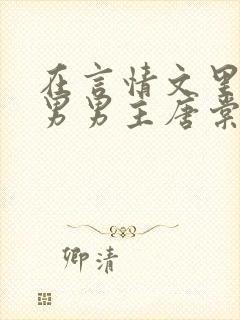 在言情文里
男男主唐棠
卿清